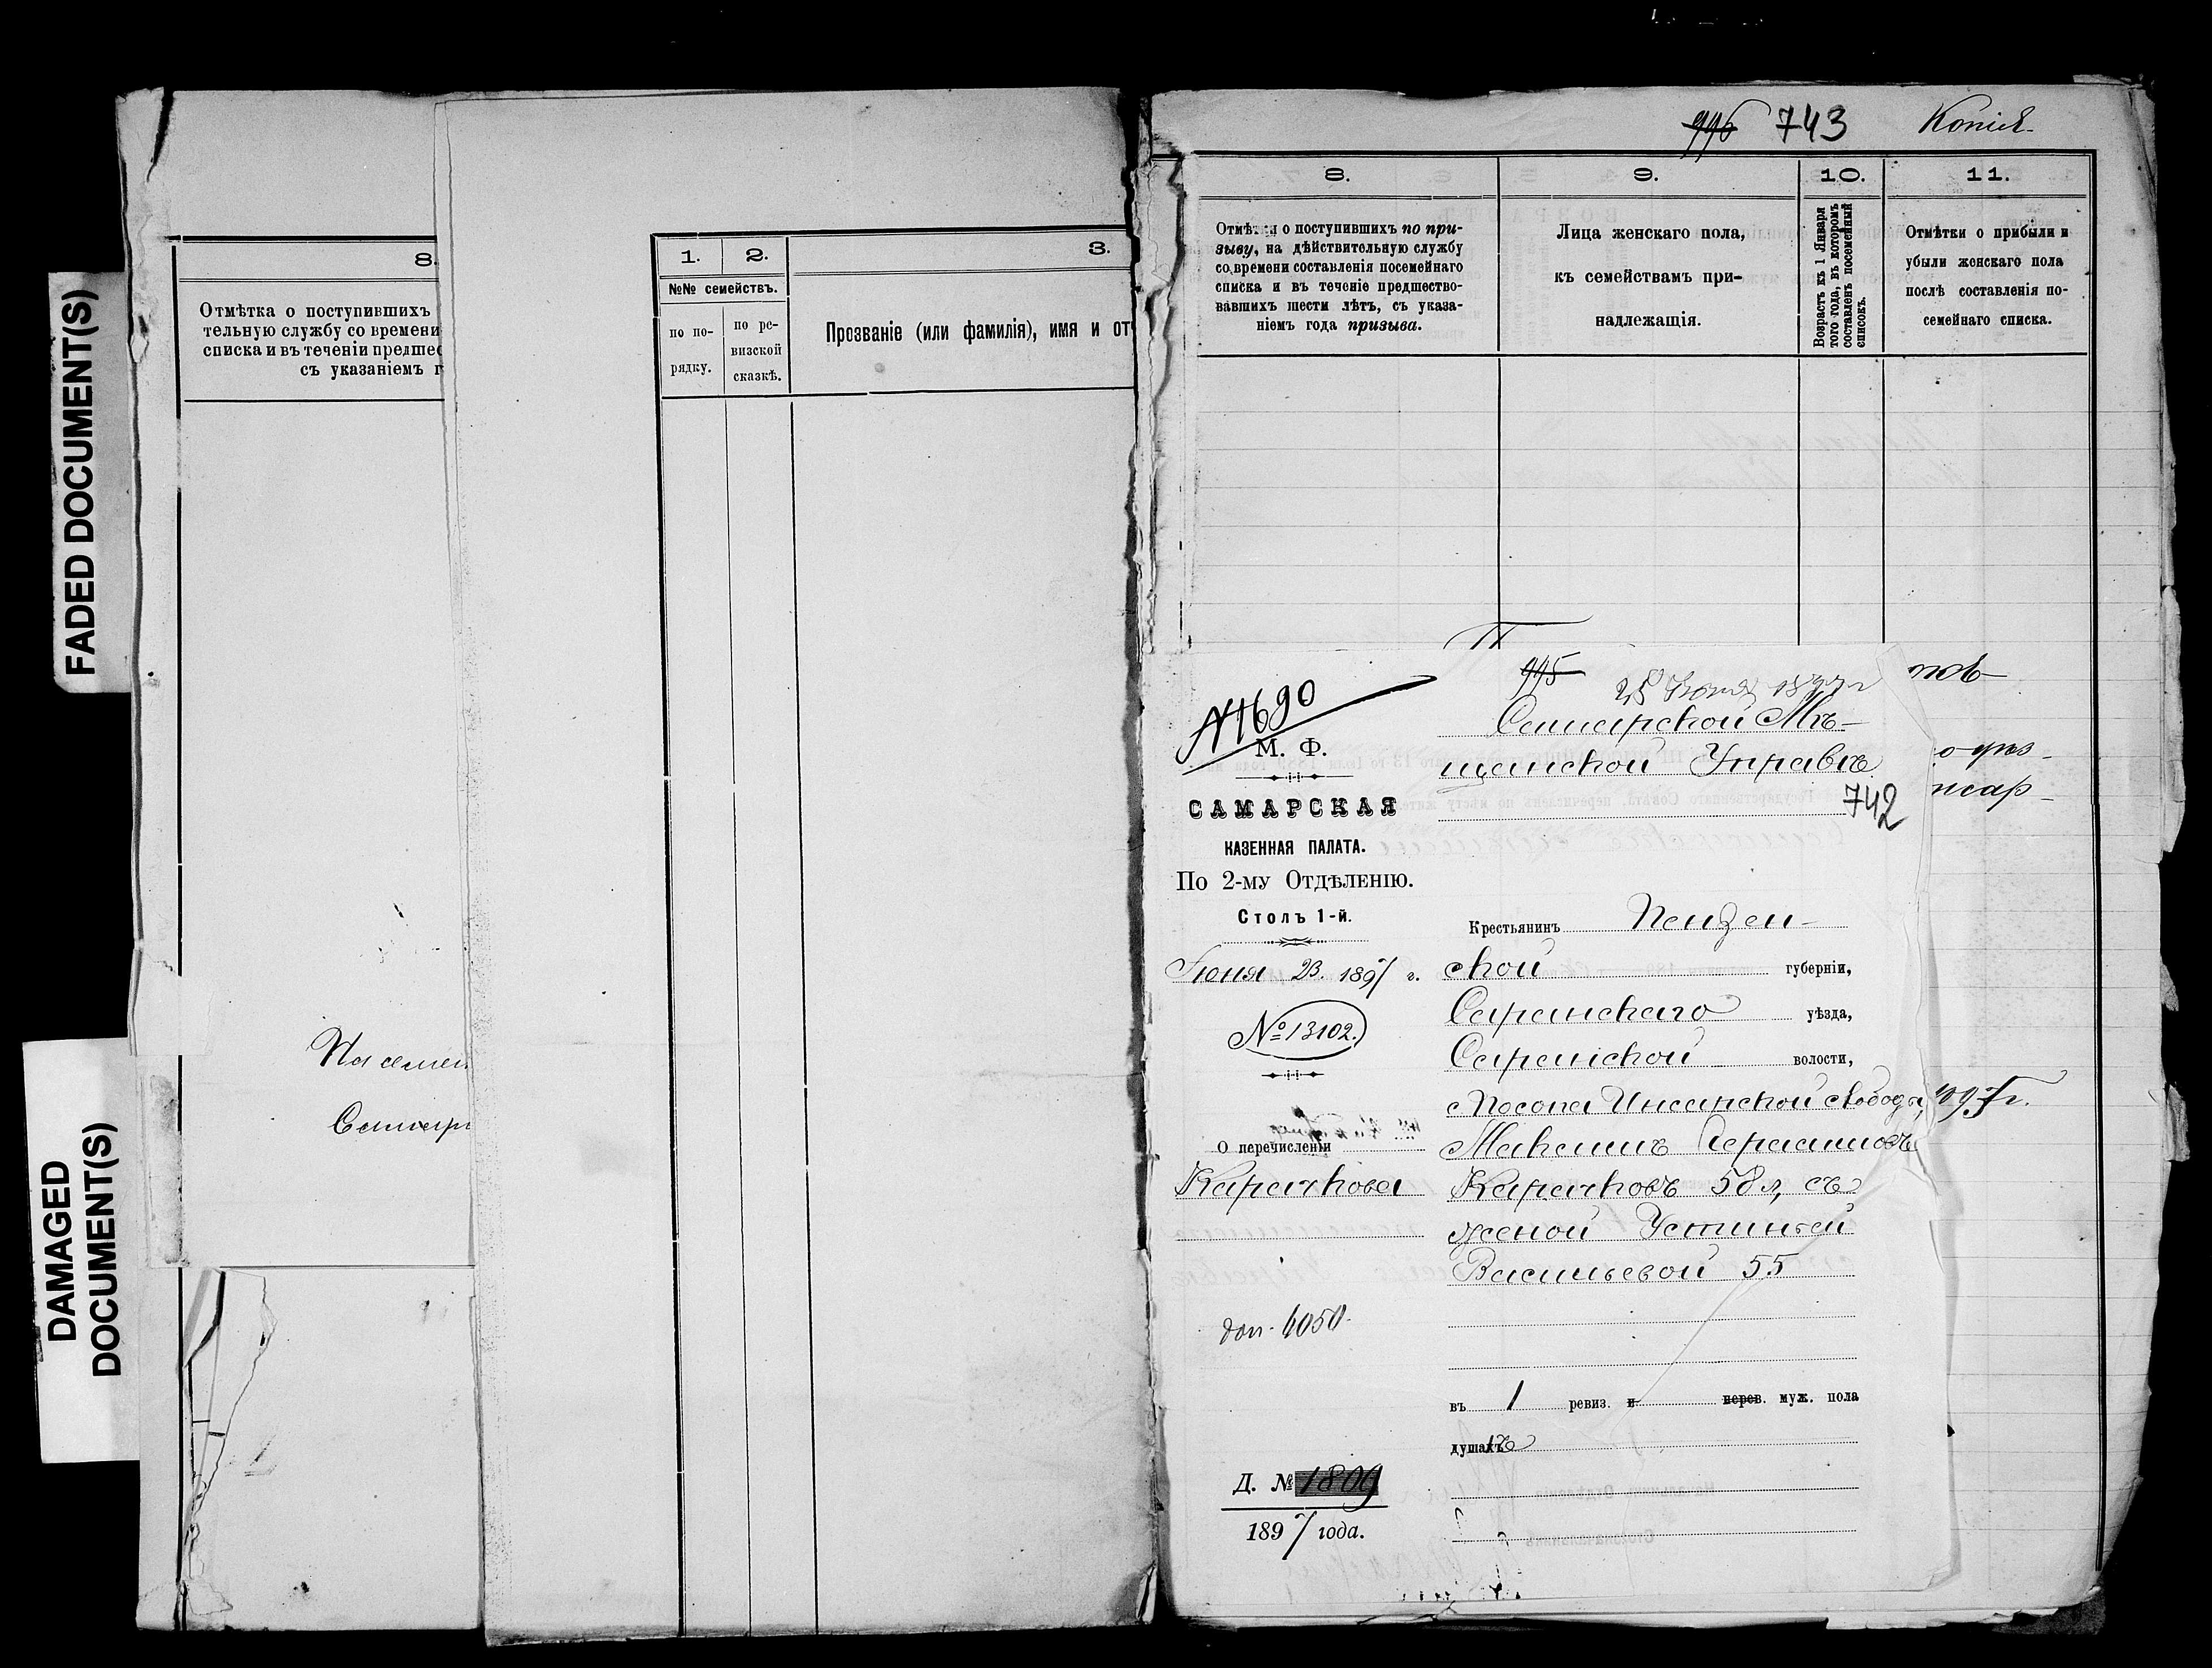 FADED DOCUMENT(S)
DAMAGED
DOCUMENT(S)
8.
Отмѣтка о поступившихъ
тельную службу со времени
списка и въ теченіи предшес
съ указаніемъ г
На семей
Самарс
1. 2. 3.
№№ семействъ.
по по-
рядку.
по ре-
визской
сказкѣ.
Прозваніе (или фамилія), имя и от
996 743 Копія
8. 9. 10. 11.
Отмѣтка о поступившихъ по при-
зыву, на дѣйствительную службу
со времени составленія посемейнаго
списка и въ теченіе предшество-
вавшихъ шести лѣтъ, съ указа-
ніемъ года призыва.
Лица женскаго пола,
къ семействамъ при-
надлежащія.
Возрастъ къ 1 Января
того года, въ которомъ
составленъ посемейный
списокъ.
Отмѣтки о прибыли и
убыли женскаго пола
послѣ составленія по-
семейнаго списка.
995
№ 1690
М. Ф.
САМАРСКАЯ
КАЗЕННАЯ ПАЛАТА.
По 2-му Отдѣленію.
Столъ 1-й.
Іюня 23. 1897 г.
№ 13102.
О перечисленіи
Карачкова
доп. 6050.
Д. № 1809
1897 года.
Самарской Мѣ-
щанской Управѣ
742
Крестьянинъ Пензен-
ской губерніи,
Саранскаго уѣзда,
Саранской волости,
Посопа Инсарской слободы,
Максимъ Герасимовъ
Карачковъ 58 л, съ
женой Устиньей
Васильевой 55
въ 1 ревиз. и перев. муж. пола
душахъ